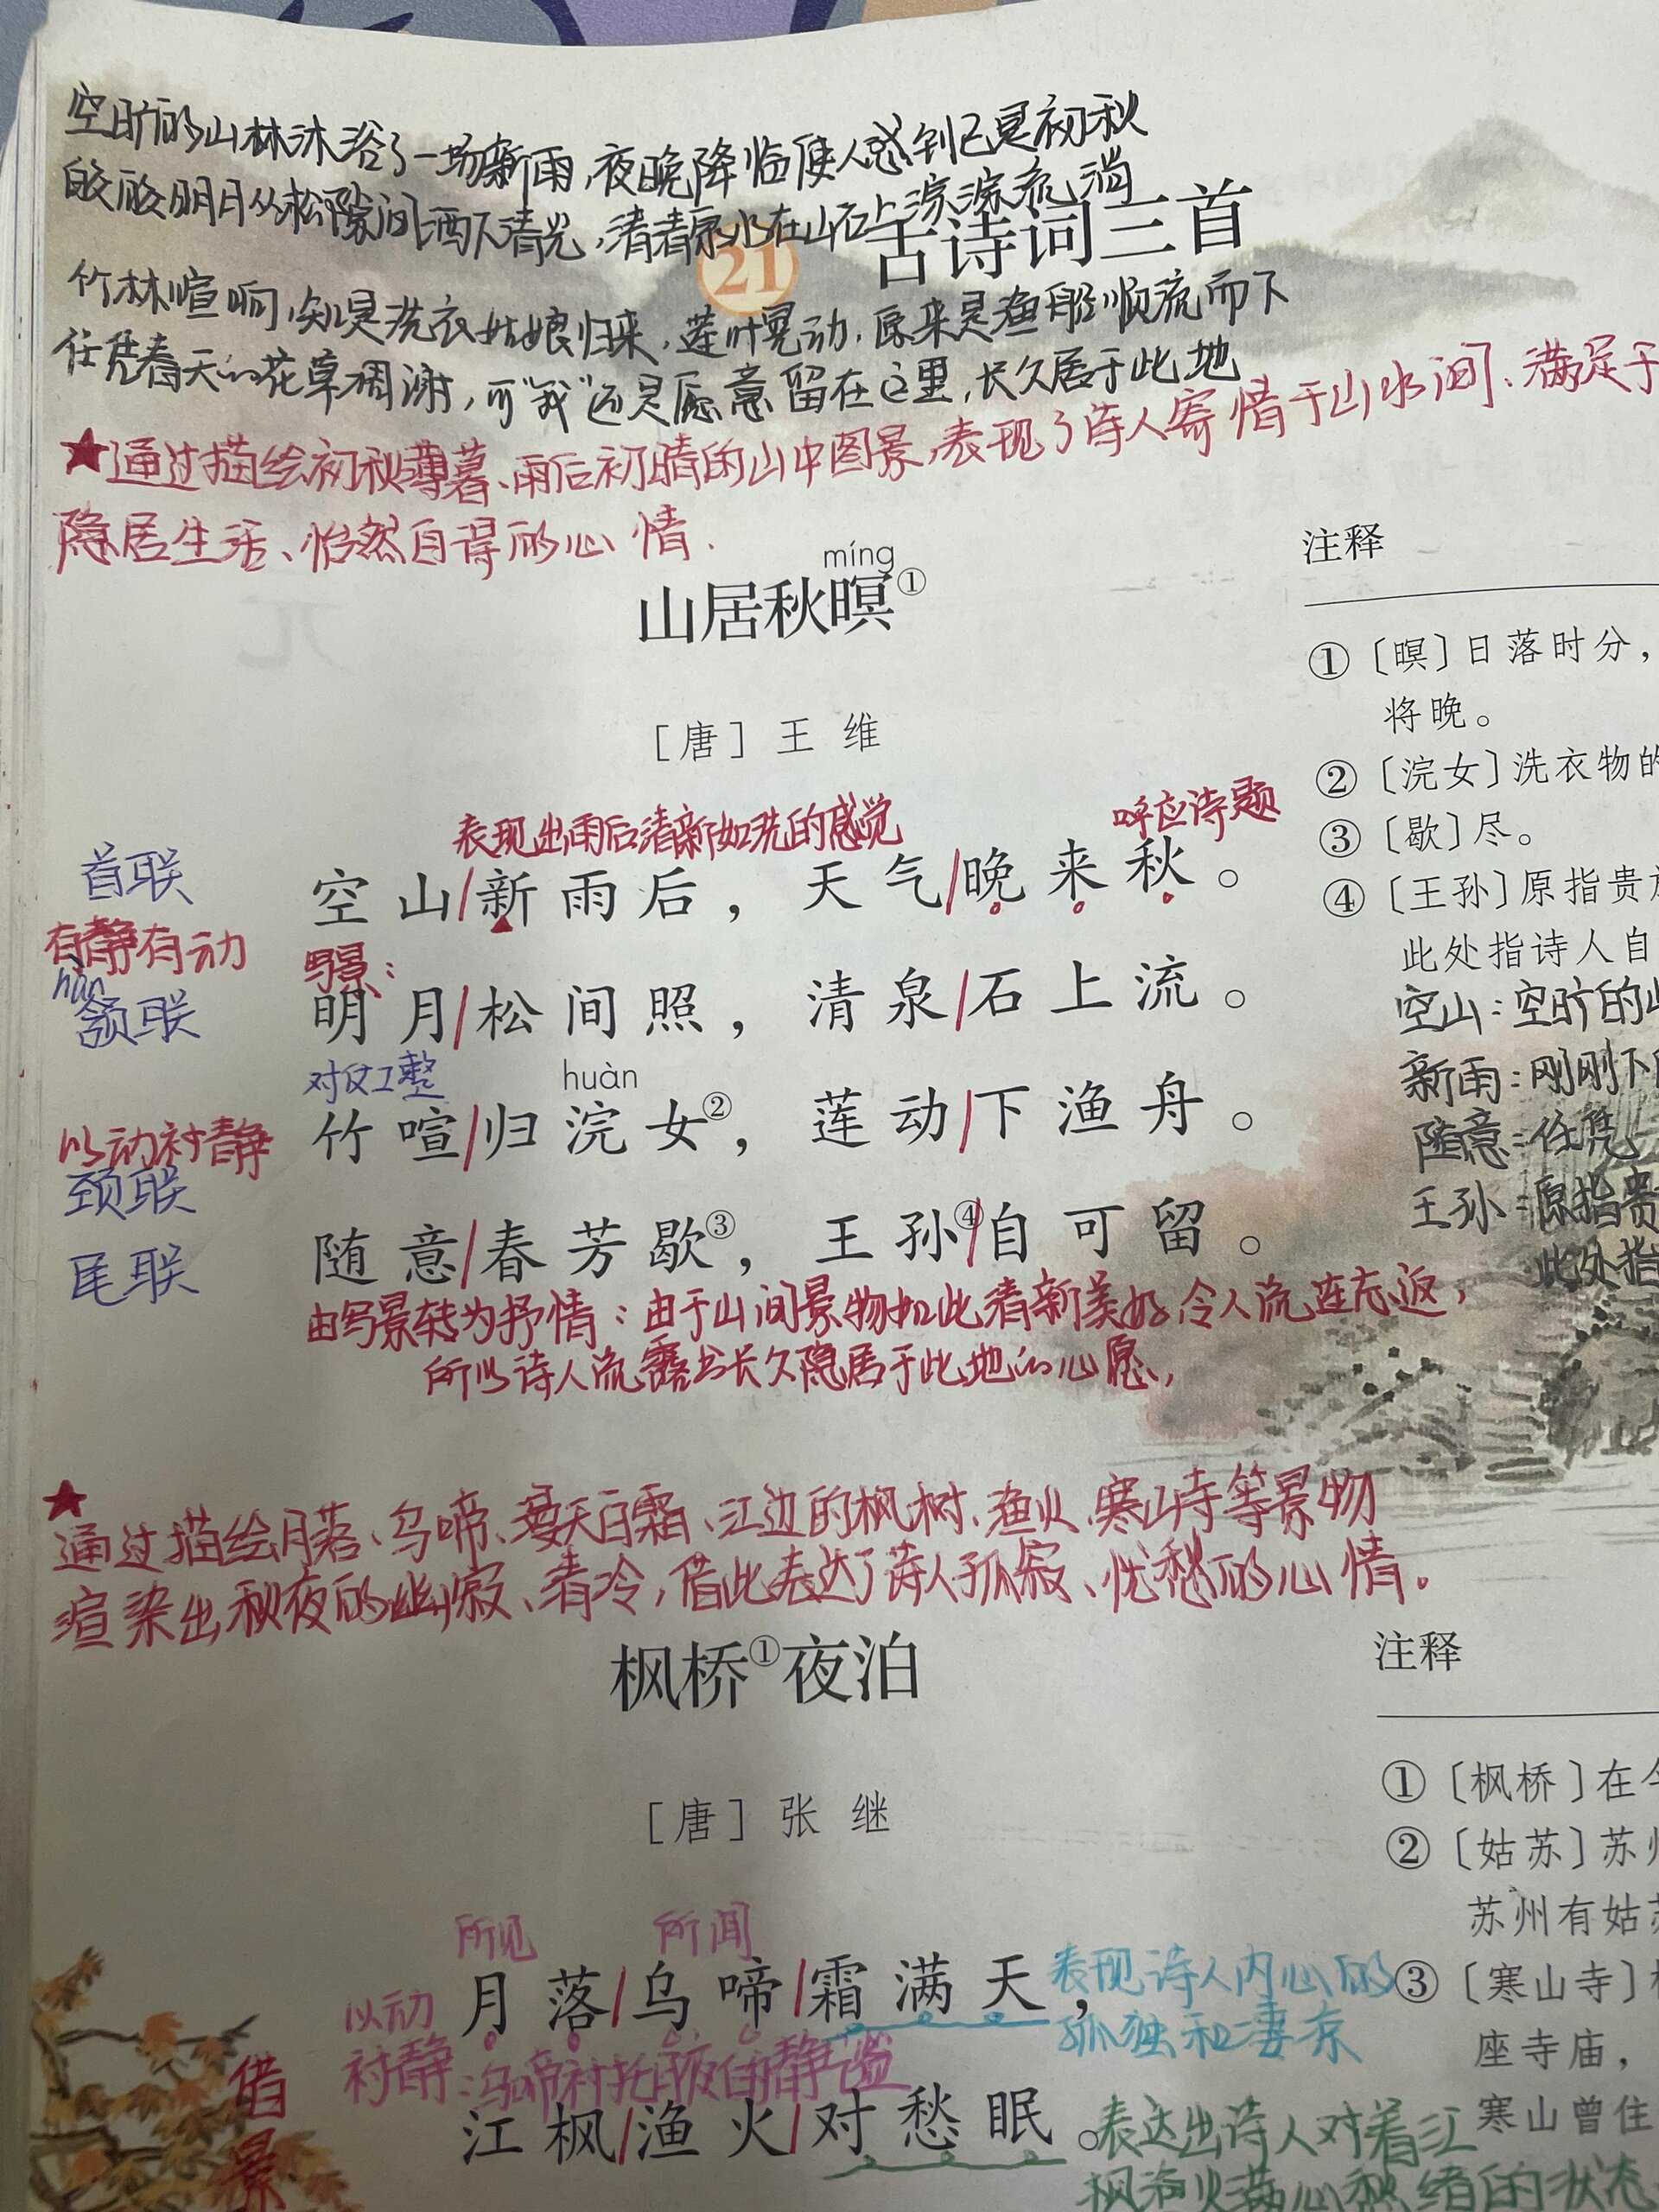 空旷的山林沐浴了一场新雨,夜晚降临使人感到已是初秋
皎皎明月从松隙间洒下清光,清清泉水在山石上淙淙流淌
21 古诗词三首
竹林喧响,知是洗衣姑娘归来,莲叶晃动,原来是渔船顺流而下
任凭春天的花草凋谢,可“我”还是愿意留在这里,长久居于此地
★通过描绘初秋薄暮、雨后初晴的山中图景,表现了诗人寄情于山水间、满足于
隐居生活、怡然自得的心情.
míng
山居秋暝①
[唐] 王维
表现出雨后清新如洗的感觉
呼应诗题
首联
空山/新雨后,天气/晚来秋。
有静有动
写景:
hàn
颔联
明月/松间照,清泉/石上流。
对仗工整
huàn
竹喧/归浣女②,莲动/下渔舟。
以动衬静
颈联
尾联
随意/春芳歇③,王孙④/自可留。
由写景转为抒情:由于山间景物如此清新美好,令人流连忘返,
所以诗人流露出长久隐居于此地的心愿,
注释
①[暝]日落时分,
将晚。
②[浣女]洗衣物的
③[歇]尽。
④[王孙]原指贵族
此处指诗人自
空山:空旷的山
新雨:刚刚下的
随意:任凭
王孙:原指贵
此处指
★
通过描绘月落、乌啼、漫天白霜、江边的枫树、渔火、寒山寺等景物
渲染出秋夜的幽寂、清冷,借此表达了诗人孤寂、忧愁的心情。
枫桥①夜泊
[唐] 张继
所见 所闻
月落/乌啼/霜满天,
表现诗人内心的
孤独和凄凉
以动
衬静:乌啼衬托夜的静谧
江枫/渔火/对愁眠。
表达出诗人对着江
枫渔火满心愁绪的状态
借
景
注释
①[枫桥]在今
②[姑苏]苏州
苏州有姑苏
③[寒山寺]
座寺庙,
寒山曾住